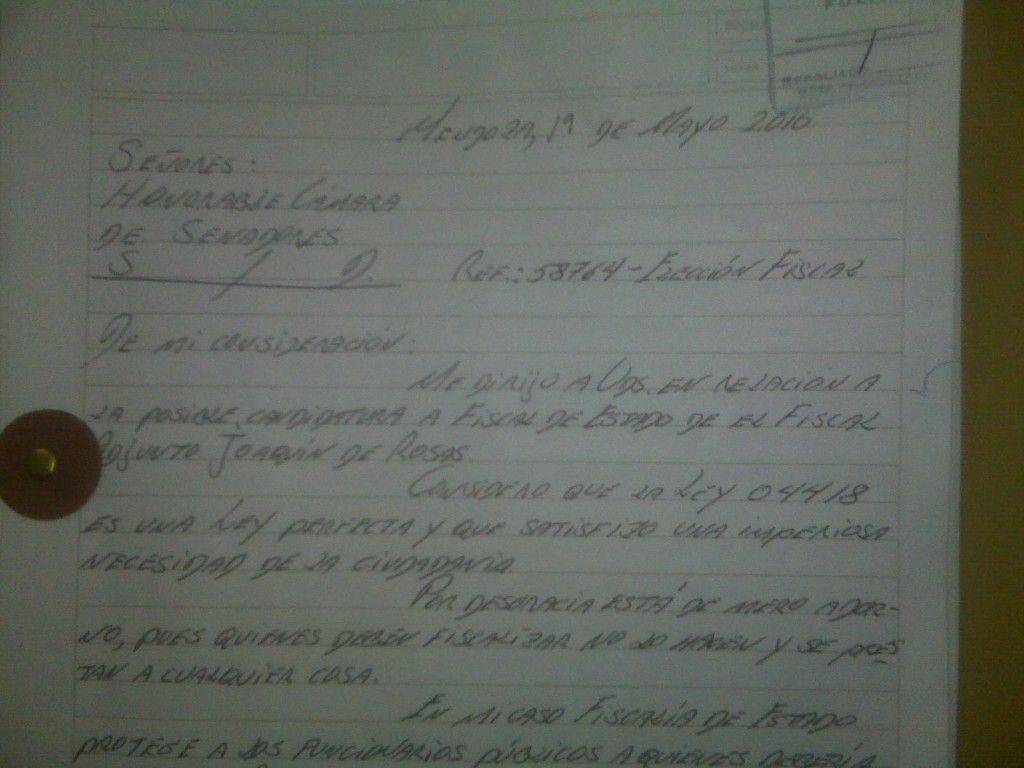 Mendoza, 19 DE Mayo 2016
SEÑORES:
HONORABLE CÁMARA
DE SENADORES
S / D. REF.: 58764 - ELECCIÓN FISCAL
DE MI CONSIDERACIÓN:
ME DIRIJO A UDS. EN RELACIÓN A
LA POSIBLE CANDIDATURA A FISCAL DE ESTADO DE EL FISCAL
ADJUNTO JOAQUÍN DE ROSAS.
CONSIDERO QUE LA LEY 04418
ES UNA LEY PERFECTA Y QUE SATISFIZO UNA IMPERIOSA
NECESIDAD DE LA CIUDADANÍA.
POR DESGRACIA ESTÁ DE MERO ADOR-
NO, PUES QUIENES DEBEN FISCALIZAR NO LO HACEN Y SE PRES
TAN A CUALQUIER COSA.
EN MI CASO FISCALÍA DE ESTADO
PROTEGE A LOS FUNCIONARIOS PÚBLICOS A QUIENES DEBERÍA